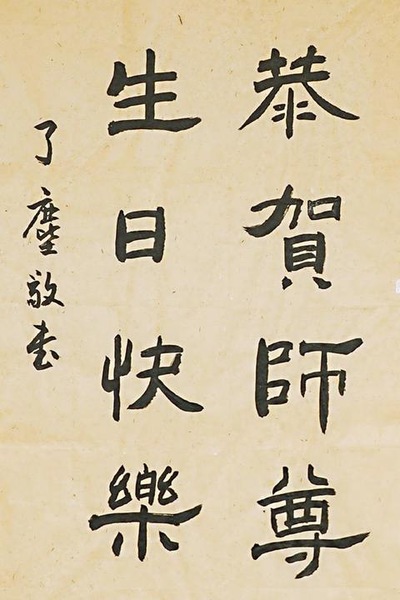 恭賀師尊
生日快樂
了塵敬書